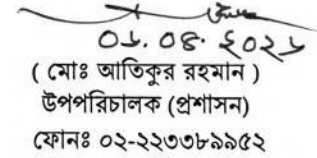 ০৬. ০৪. ২০২৬
( মোঃ আতিকুর রহমান )
উপপরিচালক (প্রশাসন)
ফোনঃ ০২-২২৩৩৮৯৯৫২